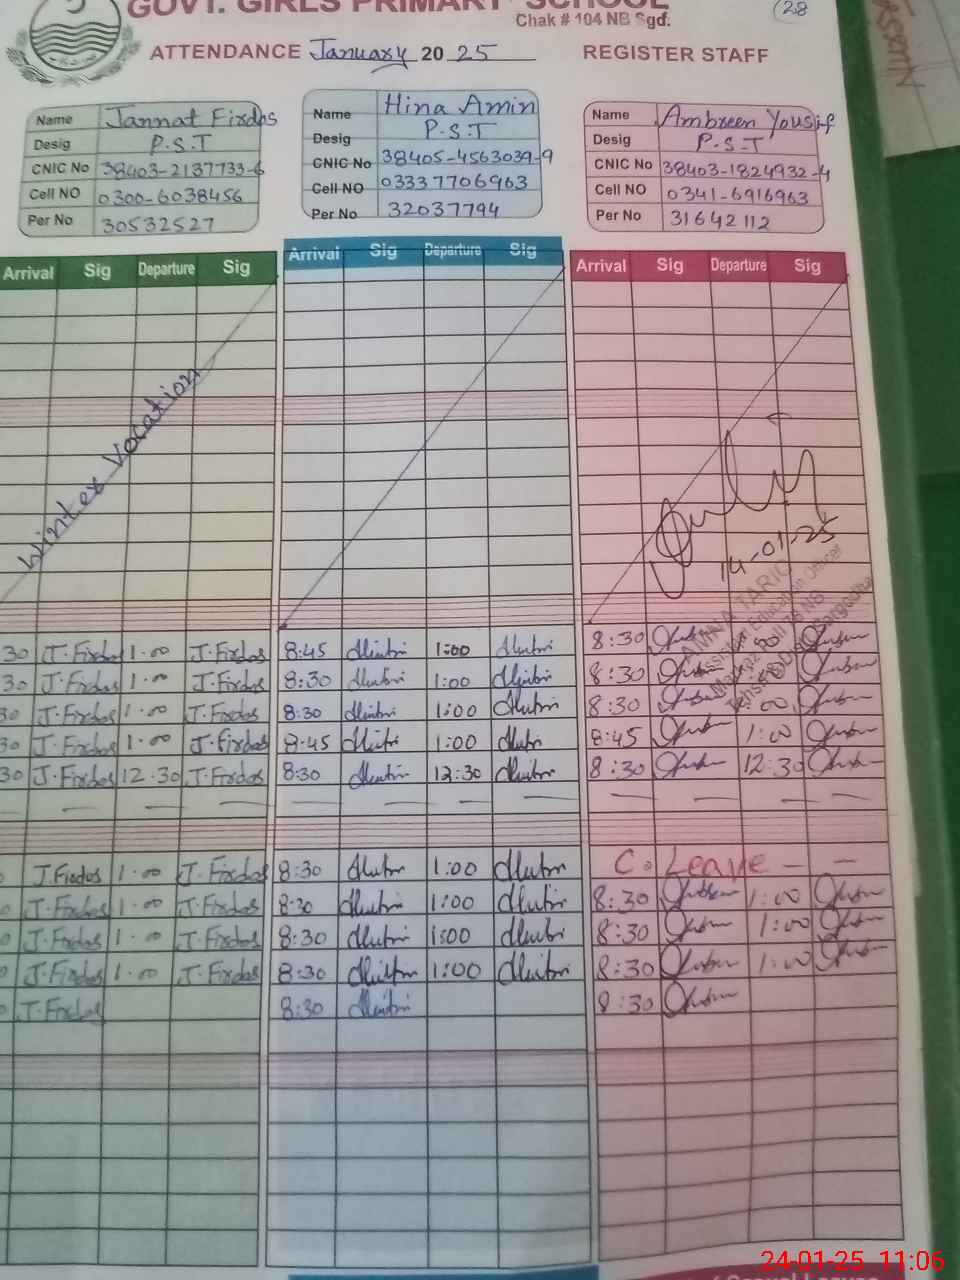 GOVT. GIRLS PRIMARY SCHOOL
Chak # 104 NB Sgd:
28
ATTENDANCE January 20 25 REGISTER STAFF
Name Jannat Firdos
Desig P.S.T
CNIC No 38403-2137733-6
Cell NO 0300-6038456
Per No 30532527
Name Hina Amin
Desig P.S.T
CNIC No 38405-4563039-9
Cell NO 03337706963
Per No 32037794
Name Ambreen Yousif
Desig P.S.T
CNIC No 38403-1824932-4
Cell NO 0341-6916963
Per No 31642112
Arrival Sig Departure Sig Arrival Sig Departure Sig Arrival Sig Departure Sig
Winter Vocation
14-01-25
AMNA TARIQ
Assistant Education Officer
30 J.Firdos 1.00 J.Firdos 8:45 1:00 8:30
30 J.Firdos 1.00 J.Firdos 8:30 1:00 8:30
30 J.Firdos 1.00 J.Firdos 8:30 1:00 8:30 1:00
30 J.Firdos 1.00 J.Firdos 8:45 1:00 8:45 1:00
30 J.Firdos 12.30 J.Firdos 8:30 12:30 8:30 12:30
— — — — — — — — — — —
J.Firdos 1.00 J.Firdos 8:30 1:00 C. Leave — —
0 J.Firdos 1.00 J.Firdos 8:30 1:00 8:30 1:00
0 J.Firdos 1.00 J.Firdos 8:30 1:00 8:30 1:00
0 J.Firdos 1.00 J.Firdos 8:30 1:00 8:30 1:00
0 J.Firdos 8:30 8:30
24-01-25 11:06